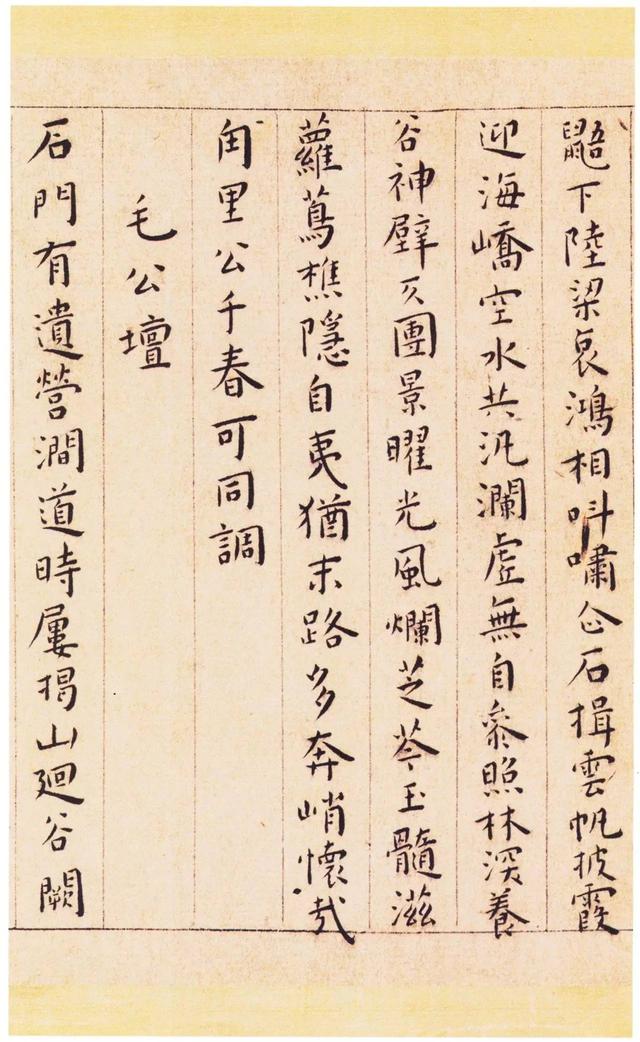 鼯下陸梁哀鴻相呌嘯仚石揖雲帆披霞
迎海嶠空水共汎瀾虛無自參照林深養
谷神壁仄團景曜光風爛芝苓玉髓滋
蘿蔦樵隱自夷猶末路多奔峭懷哉
甪里公千春可同調
毛公壇
石門有遺營澗道時屢揭山迴谷闕